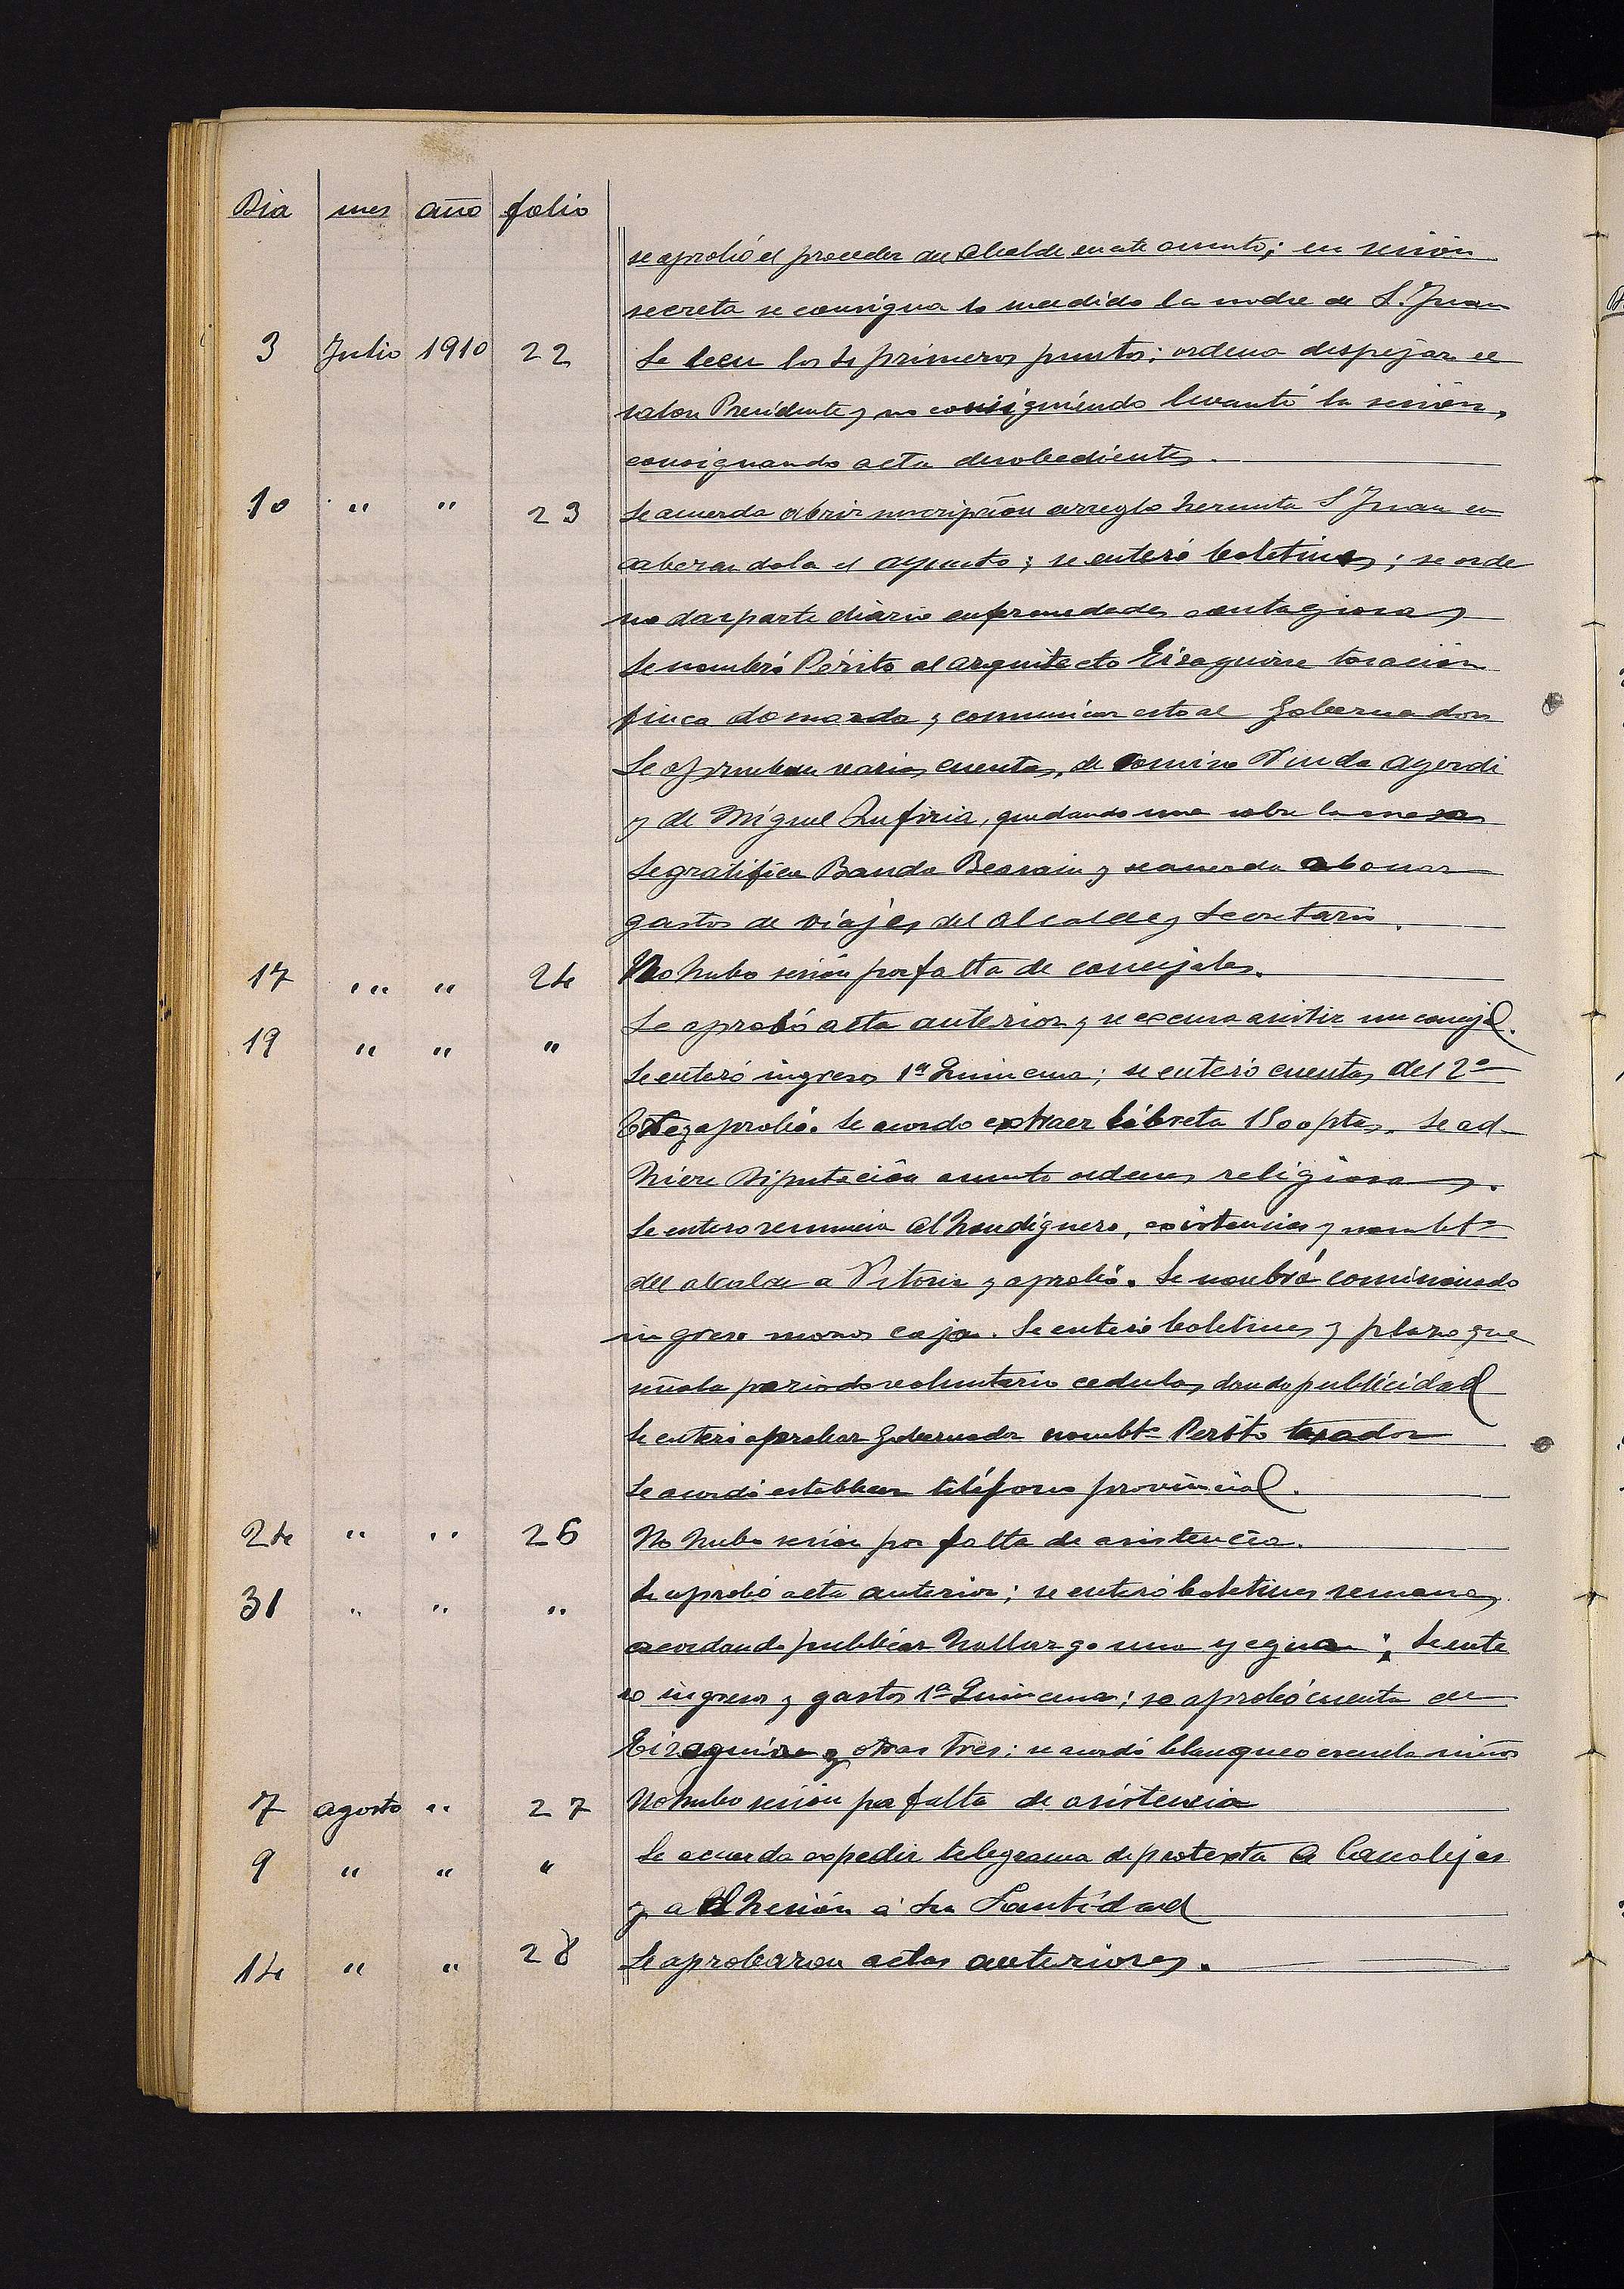 Dia mes año folio
se aprobó el proceder del Alcalde en este asunto; en sesión
secreta se consigna lo sucedido la noche de S. Juan
3 Julio 1910 22 Se leen los 4 primeros puntos; ordena despejar el
salon Presidente y no consiguiéndo levantó la sesión,
consignando acta desobedientes.
10 " " 23 Se acuerda abrir suscripción arreglo hermita S Juan en
cabezandola el ayunto; se enteró boletines; se orde
no dar parte diario enfermedades contagiosas
Se nombró Périto al arquitecto Eizaguirre tasacion
finca domanda y comunicar esto al Gobernador
Se aprueban varias cuentas, de Ramira Viuda Ayerdi
y de Miguel Zufiria, quedando una sobre la mesa
Se gratifica Banda Beasain y se acuerda abonar
gastos de viajes del alcalde y Secretario.
17 " " 24 No hubo sesión por falta de concejales.
19 " " " Se aprobó acta anterior y se excusa asistir un concejal.
Se enteró ingresos 1ª Quincena; se enteró cuentas del 2º
Tre y aprobó. Se acordo extraer libreta 1500 ptas. Se ad-
hiere Diputación asunto ordenes religiosas.
Se entero renuncia Alhondiguero, existencias y nombtº
del alcalde a Vitoria y aprobó. Se nombró comisionado
ingreso mozos caja. Se enteró boletines y plazo que
señala periodo voluntario cedulas, dando publicidad
Se enteró aprobar Gobernador nombtº Perito tasador
Se acordó establecer teléfono provincial.
24 " " 26 No hubo sesión por falta de asistencia.
31 " " " Se aprobó acta anterior; se enteró boletines semana,
acordando publicar hallazgo una yegua; Se ente
ró ingresos y gastos 1ª Quincena; se aprobó cuenta de
Eizaguirre y otras tres; se acordó blanqueo escuela niños
7 agosto " 27 No hubo sesión por falta de asistencia
9 " " " Se acuerda expedir telegrama de protexta a Canalejas
y adhesión á Su Santidad
14 " " 28 Se aprobaron actas anteriores.